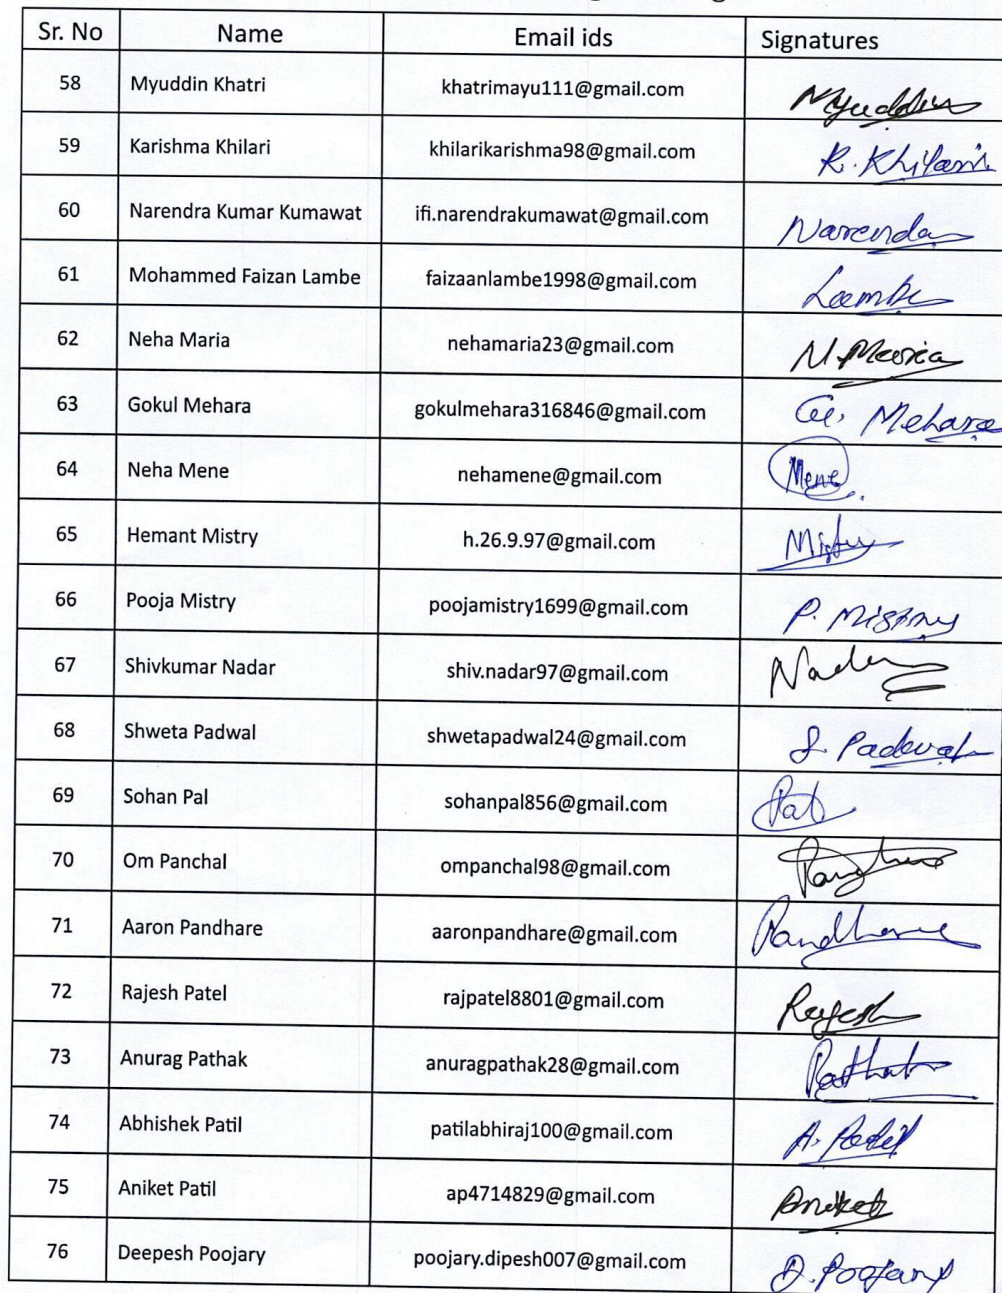 Sr. No Name Email ids Signatures
58 Myuddin Khatri khatrimayu111@gmail.com Myuddin
59 Karishma Khilari khilarikarishma98@gmail.com K. Khilari
60 Narendra Kumar Kumawat ifi.narendrakumawat@gmail.com Narendra
61 Mohammed Faizan Lambe faizaanlambe1998@gmail.com Lambe
62 Neha Maria nehamaria23@gmail.com N. Maria
63 Gokul Mehara gokulmehara316846@gmail.com G. Mehara
64 Neha Mene nehamene@gmail.com Mene
65 Hemant Mistry h.26.9.97@gmail.com Mistry
66 Pooja Mistry poojamistry1699@gmail.com P. Mistry
67 Shivkumar Nadar shiv.nadar97@gmail.com
68 Shweta Padwal shwetapadwal24@gmail.com S. Padewal
69 Sohan Pal sohanpal856@gmail.com Pal
70 Om Panchal ompanchal98@gmail.com
71 Aaron Pandhare aaronpandhare@gmail.com Pandhare
72 Rajesh Patel rajpatel8801@gmail.com Rajesh
73 Anurag Pathak anuragpathak28@gmail.com Pathak
74 Abhishek Patil patilabhiraj100@gmail.com A. Patil
75 Aniket Patil ap4714829@gmail.com Aniket
76 Deepesh Poojary poojary.dipesh007@gmail.com D. Poojary